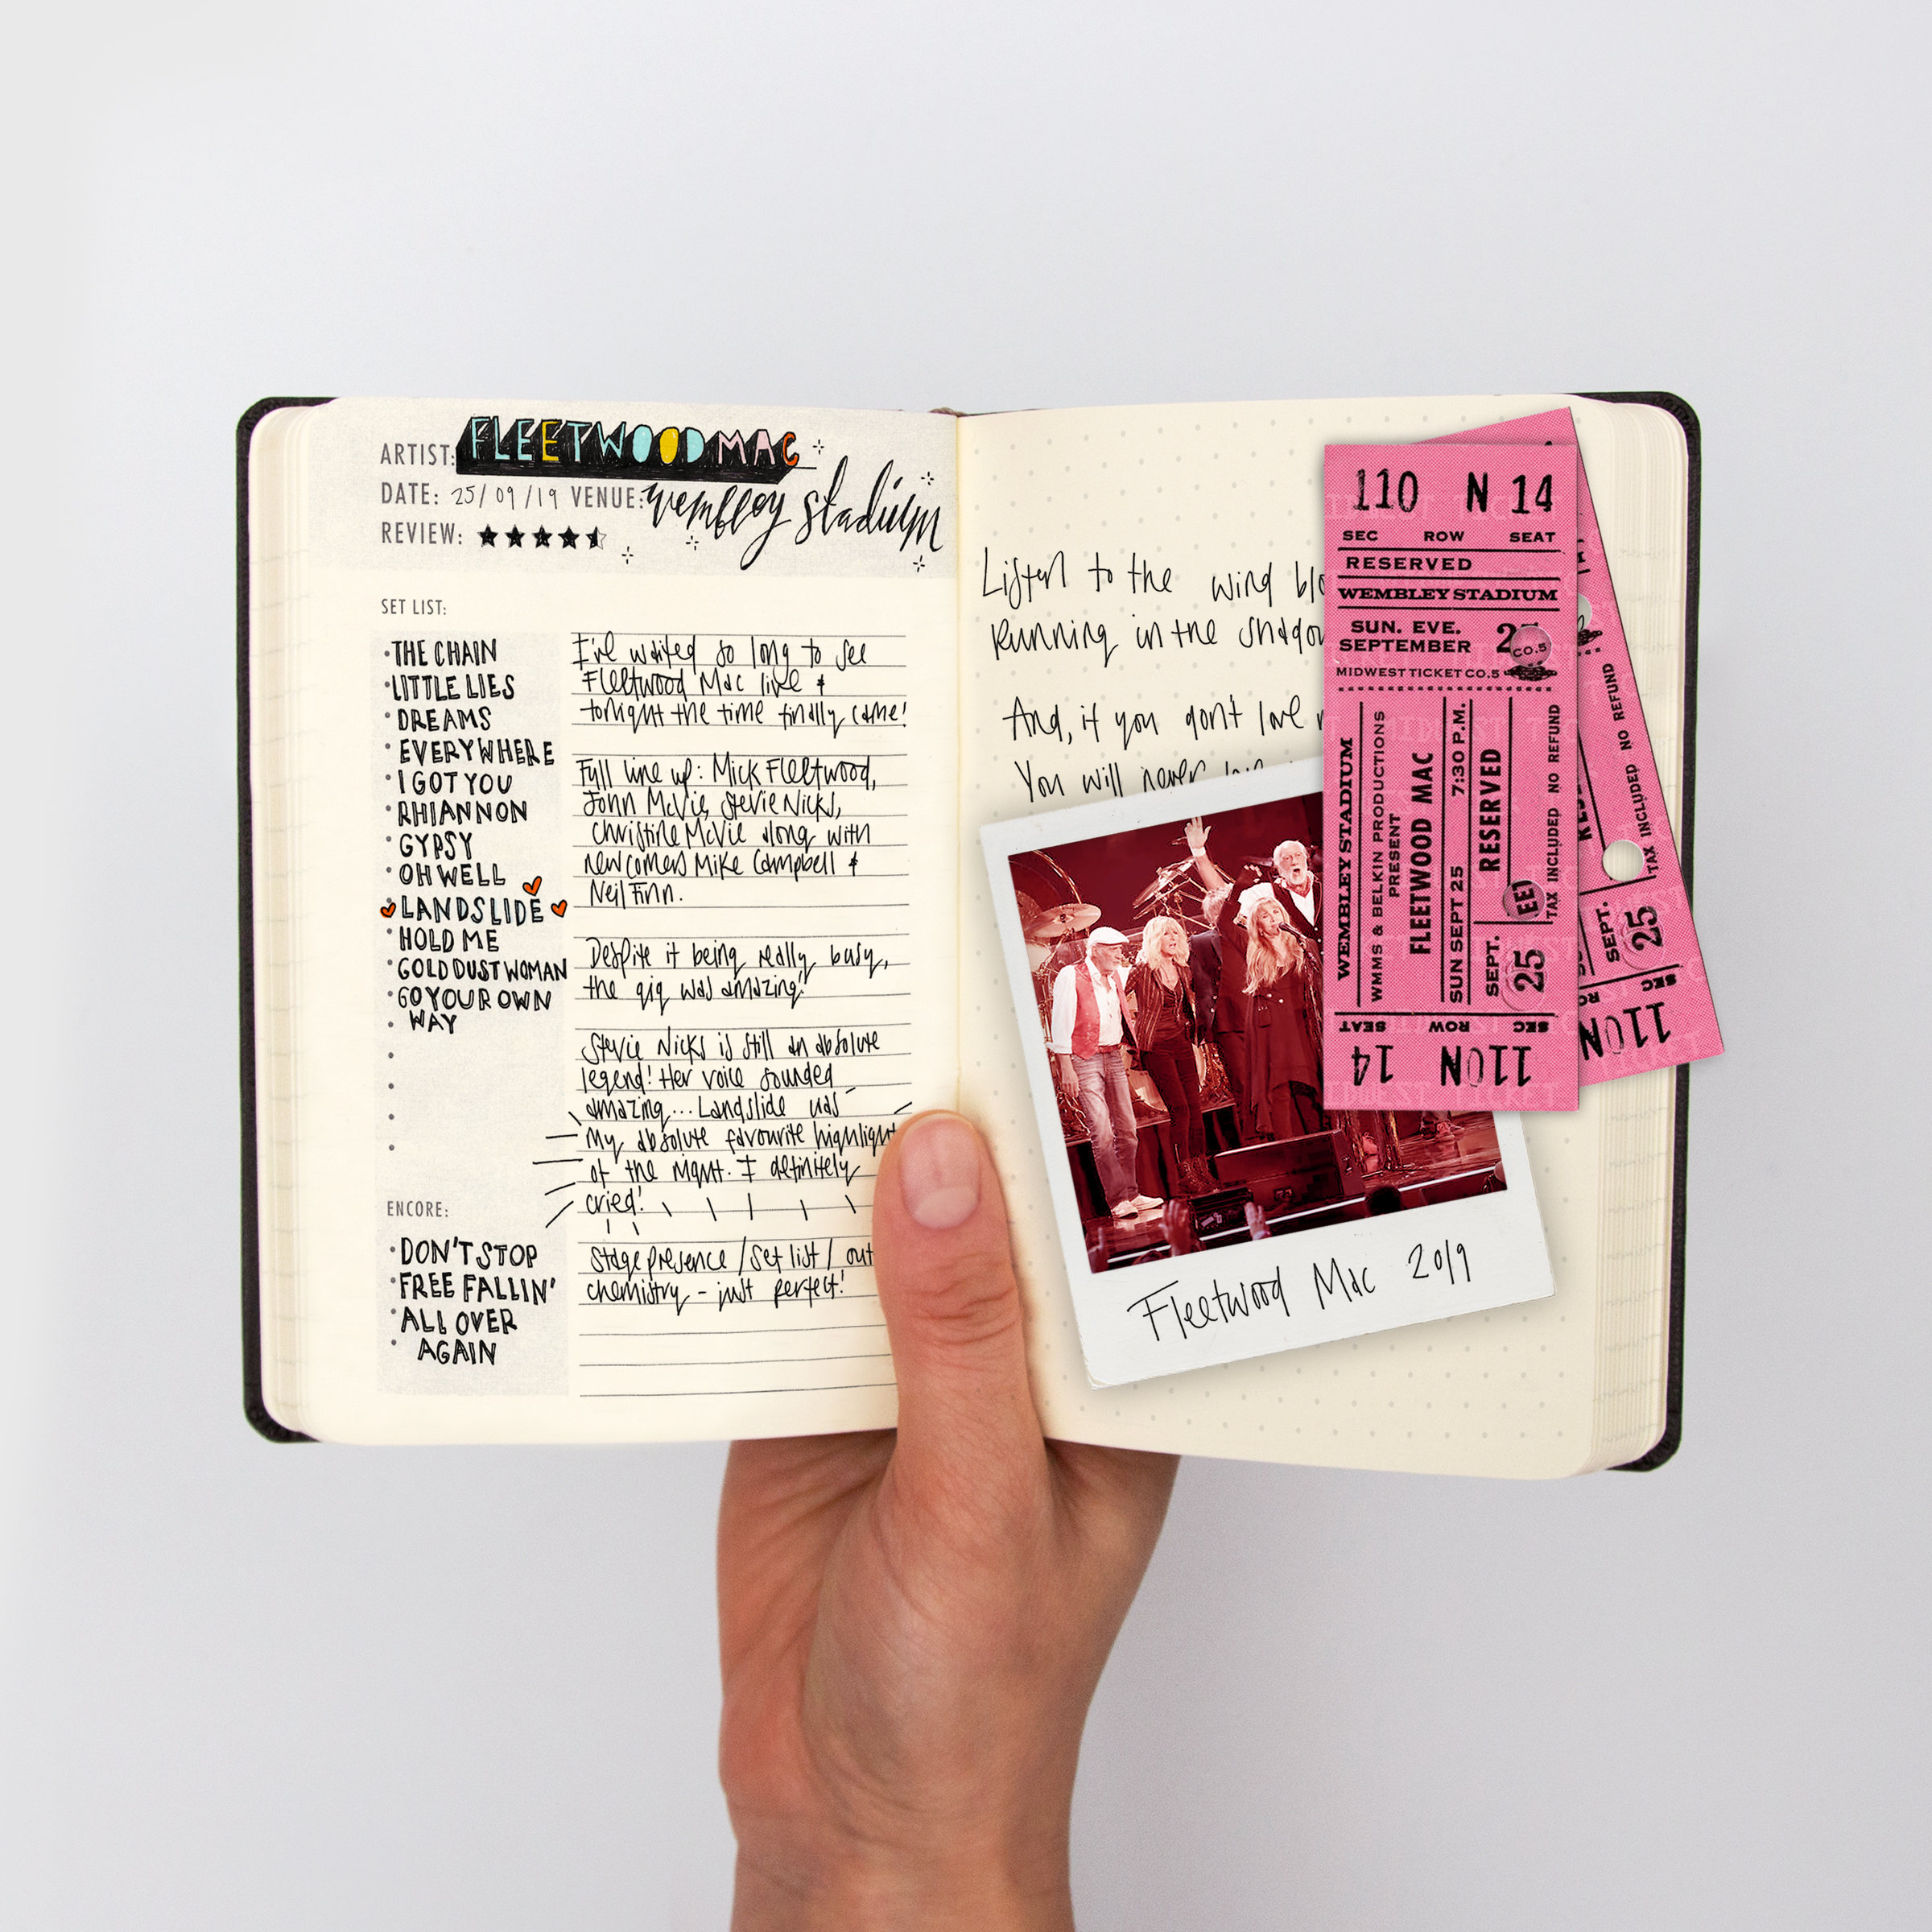 ARTIST: FLEETWOOD MAC
DATE: 25/09/19 VENUE: wembley stadium
REVIEW:
SET LIST:
THE CHAIN
LITTLE LIES
DREAMS
EVERYWHERE
I GOT YOU
RHIANNON
GYPSY
OH WELL
LANDSLIDE
HOLD ME
GOLD DUST WOMAN
GO YOUR OWN
WAY
ENCORE:
DON'T STOP
FREE FALLIN'
ALL OVER
AGAIN
I've waited so long to see
Fleetwood Mac live &
tonight the time finally came!
Full line up: Mick Fleetwood,
John McVie, Stevie Nicks,
Christine McVie along with
newcomers Mike Campbell &
Neil Finn.
Despite it being really busy,
the gig was amazing!
Stevie Nicks is still an absolute
legend! Her voice sounded
amazing... Landslide was
My absolute favourite highlight
of the night. I definitely
cried!
Stage presence / set list / out
chemistry - just perfect!
Listen to the wind blo
Running in the shadow
And, if you don't love
You will never
Fleetwood Mac 2019
110 N 14
SEC ROW SEAT
RESERVED
WEMBLEY STADIUM
SUN. EVE.
SEPTEMBER 25
MIDWEST TICKET CO.5
WEMBLEY STADIUM
WMMS & BELKIN PRODUCTIONS
PRESENT
FLEETWOOD MAC
SUN SEPT 25 7:30 P.M.
RESERVED
SEPT. 25
TAX INCLUDED NO REFUND
SEC ROW SEAT
110 N 14
TAX INCLUDED NO REFUND
SEPT. 25
SEC
110 N